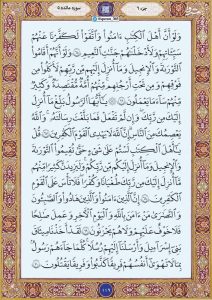 جزء ٦
سوره مائده ٥
وَلَوْ أَنَّ أَهْلَ ٱلْكِتَٰبِ ءَامَنُوا۟ وَٱتَّقَوْا۟ لَكَفَّرْنَا عَنْهُمْ
سَيِّـَٔاتِهِمْ وَلَأَدْخَلْنَٰهُمْ جَنَّٰتِ ٱلنَّعِيمِ ۝٦٥ وَلَوْ أَنَّهُمْ أَقَامُوا۟
ٱلتَّوْرَىٰةَ وَٱلْإِنجِيلَ وَمَآ أُنزِلَ إِلَيْهِم مِّن رَّبِّهِمْ لَأَكَلُوا۟ مِن
فَوْقِهِمْ وَمِن تَحْتِ أَرْجُلِهِم ۚ مِّنْهُمْ أُمَّةٌ مُّقْتَصِدَةٌ ۖ وَكَثِيرٌ
مِّنْهُمْ سَآءَ مَا يَعْمَلُونَ ۝٦٦ يَٰٓأَيُّهَا ٱلرَّسُولُ بَلِّغْ مَآ أُنزِلَ
إِلَيْكَ مِن رَّبِّكَ ۖ وَإِن لَّمْ تَفْعَلْ فَمَا بَلَّغْتَ رِسَالَتَهُۥ ۚ وَٱللَّهُ
يَعْصِمُكَ مِنَ ٱلنَّاسِ ۗ إِنَّ ٱللَّهَ لَا يَهْدِى ٱلْقَوْمَ ٱلْكَٰفِرِينَ ۝٦٧ قُلْ
يَٰٓأَهْلَ ٱلْكِتَٰبِ لَسْتُمْ عَلَىٰ شَىْءٍ حَتَّىٰ تُقِيمُوا۟ ٱلتَّوْرَىٰةَ
وَٱلْإِنجِيلَ وَمَآ أُنزِلَ إِلَيْكُم مِّن رَّبِّكُمْ ۗ وَلَيَزِيدَنَّ كَثِيرًا مِّنْهُم
مَّآ أُنزِلَ إِلَيْكَ مِن رَّبِّكَ طُغْيَٰنًا وَكُفْرًا ۖ فَلَا تَأْسَ عَلَى ٱلْقَوْمِ
ٱلْكَٰفِرِينَ ۝٦٨ إِنَّ ٱلَّذِينَ ءَامَنُوا۟ وَٱلَّذِينَ هَادُوا۟ وَٱلصَّٰبِـُٔونَ
وَٱلنَّصَٰرَىٰ مَنْ ءَامَنَ بِٱللَّهِ وَٱلْيَوْمِ ٱلْءَاخِرِ وَعَمِلَ صَٰلِحًا
فَلَا خَوْفٌ عَلَيْهِمْ وَلَا هُمْ يَحْزَنُونَ ۝٦٩ لَقَدْ أَخَذْنَا مِيثَٰقَ
بَنِىٓ إِسْرَٰٓءِيلَ وَأَرْسَلْنَآ إِلَيْهِمْ رُسُلًا ۖ كُلَّمَا جَآءَهُمْ رَسُولٌۢ
بِمَا لَا تَهْوَىٰٓ أَنفُسُهُمْ فَرِيقًا كَذَّبُوا۟ وَفَرِيقًا يَقْتُلُونَ ۝٧٠
١١٩